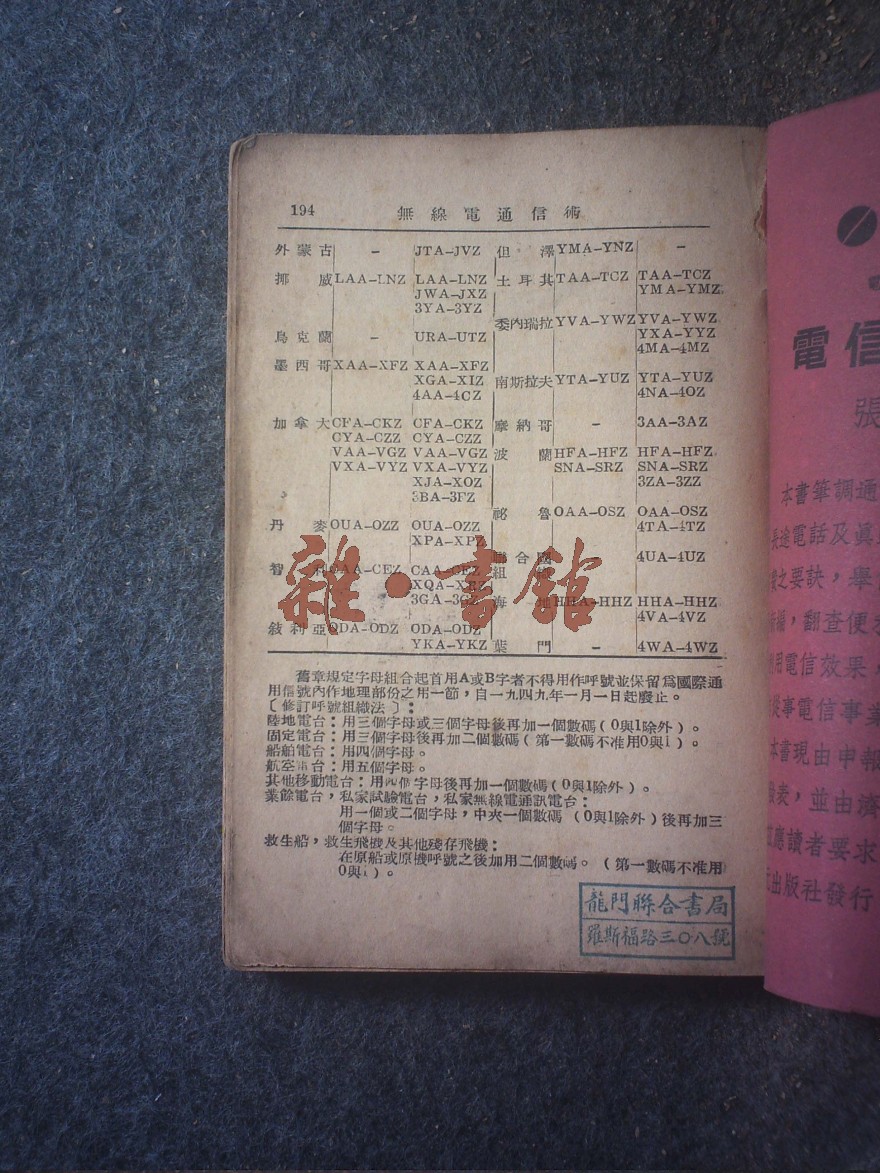 194 無線電通信術
外蒙古 – JTA–JVZ
挪威 LAA–LNZ LAA–LNZ
JWA–JXZ
3YA–3YZ
烏克蘭 – URA–UTZ
墨西哥 XAA–XFZ XAA–XFZ
XGA–XIZ
4AA–4CZ
加拿大 CFA–CKZ CFA–CKZ
CYA–CZZ CYA–CZZ
VAA–VGZ VAA–VGZ
VXA–VYZ VXA–VYZ
XJA–XOZ
3BA–3FZ
丹麥 OUA–OZZ OUA–OZZ
XPA–XPZ
智利 CAA–CEZ CAA–CEZ
3GA–3GZ
敍利亞 ODA–ODZ ODA–ODZ
YKA–YKZ
但澤 YMA–YNZ –
土耳其 TAA–TCZ TAA–TCZ
YMA–YMZ
委內瑞拉 YVA–YWZ YVA–YWZ
YXA–YYZ
4MA–4MZ
南斯拉夫 YTA–YUZ YTA–YUZ
4NA–4OZ
摩納哥 – 3AA–3AZ
波蘭 HFA–HFZ HFA–HFZ
SNA–SRZ SNA–SRZ
3ZA–3ZZ
祕魯 OAA–OSZ OAA–OSZ
4TA–4TZ
聯合國 4UA–4UZ
組
海地 HHA–HHZ HHA–HHZ
4VA–4VZ
葉門 – 4WA–4WZ
舊章規定字母組合起首用A或B字者不得用作呼號並保留爲國際通
用信號內作地理部份之用一節，自一九四九年一月一日起廢止。
〔修訂呼號組織法〕：
陸地電台：用三個字母或三個字母後再加一個數碼（0與1除外）。
固定電台：用三個字母後再加二個數碼（第一數碼不准用0與1）。
船舶電台：用四個字母。
航空電台：用五個字母。
其他移動電台：用四個字母後再加一個數碼（0與1除外）。
業餘電台，私家試驗電台，私家無線電通訊電台：
用一個或二個字母，中夾一個數碼（0與1除外）後再加三
個字母。
救生船，救生飛機及其他殘存飛機：
在原船或原機呼號之後加用二個數碼。（第一數碼不准用
0與1）。
龍門聯合書局
羅斯福路三〇八號
雜·書舘
電信
張
本書筆調通
長途電話及眞
之要訣，舉
，翻查便
用電信效果，
從事電信事業
本書現由申報
發表，並由濟
應讀者要求
出版社發行